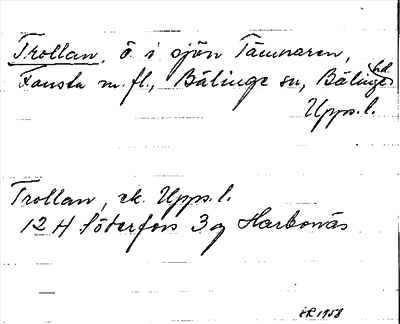 Trollan, ö i sjön Tämnaren,
Fansta m. fl., Bälinge sn, Bälinge hd.
Upps. l.
Trollan, ek. Upps. l.
12 H Söderfors 3 g Harbonäs
KR 1958